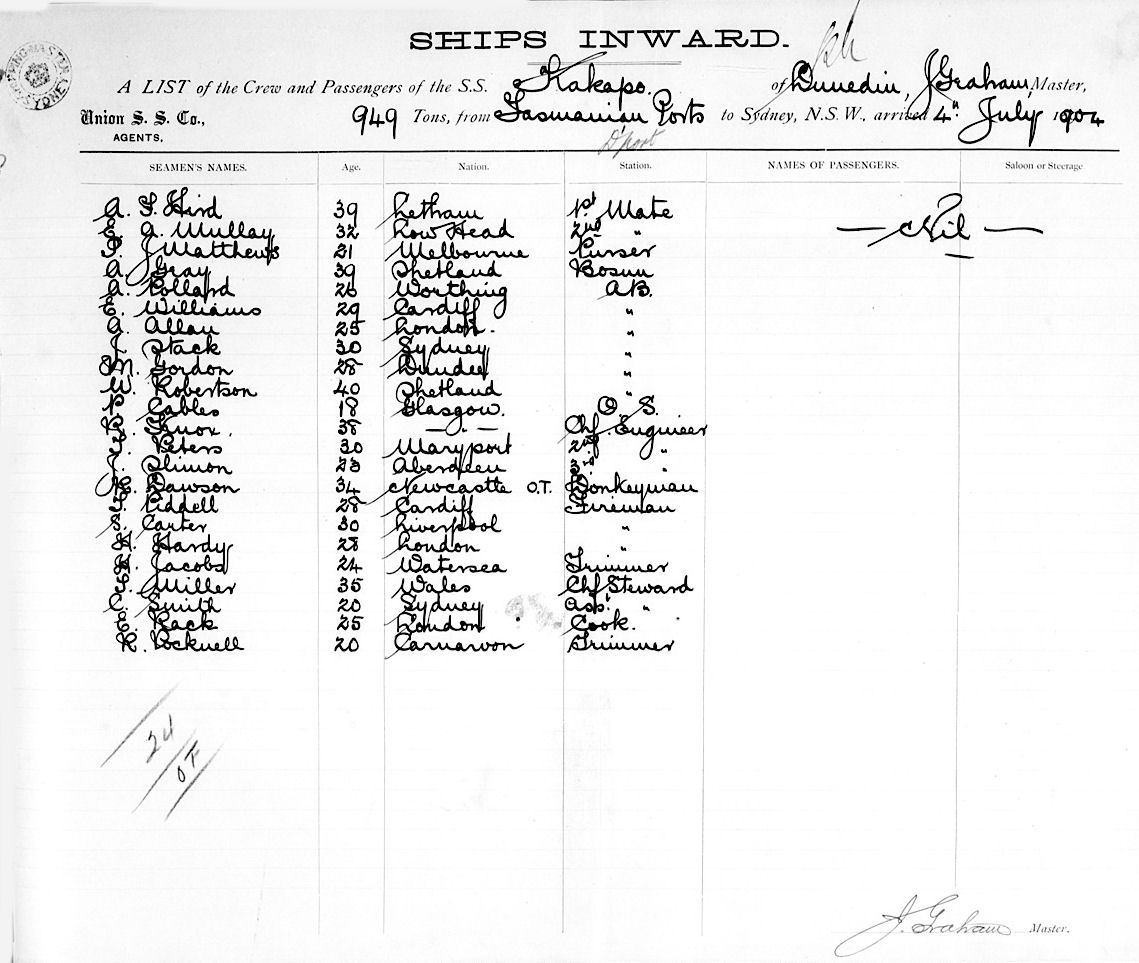 SHIPS INWARD.
A LIST of the Crew and Passengers of the S.S. Kakapo. of Dunedin, J Graham, Master,
Union S. S. Co., 949 Tons, from Tasmanian Ports to Sydney, N.S.W., arrived 4th July 1904
AGENTS.
D'port
SEAMEN'S NAMES. Age. Nation. Station. NAMES OF PASSENGERS. Saloon or Steerage
A. S. Hird 39 Letham 1st Mate
— Nil —
E. A. Mullay 32 Low Head 2nd "
P. J Matthews 21 Melbourne Purser
A. Gray 39 Shetland Bosun
A. Pollard 26 Worthing A.B.
E. Williams 29 Cardiff "
A. Allan 25 London. "
J. Stack 30 Sydney "
M. Gordon 28 Dundee "
W. Robertson 40 Shetland "
P. Cables 18 Glasgow. O. S.
Knox. 38 — " — Chf. Engineer
Peters 30 Maryport 2nd "
Slimon 23 Aberdeen 3rd "
Dawson 34 Newcastle O.T. Donkeyman
Piddell 28 Cardiff Fireman
S. Carter 30 Liverpool "
H. Hardy 28 London "
H. Jacobs 24 Watersea Trimmer
Miller 35 Wales Chf Steward
C. Smith 20 Sydney Ass. "
Rack 25 London Cook.
R. Rocknell 20 Carnarvon Trimmer
24
OT
J. Graham Master.